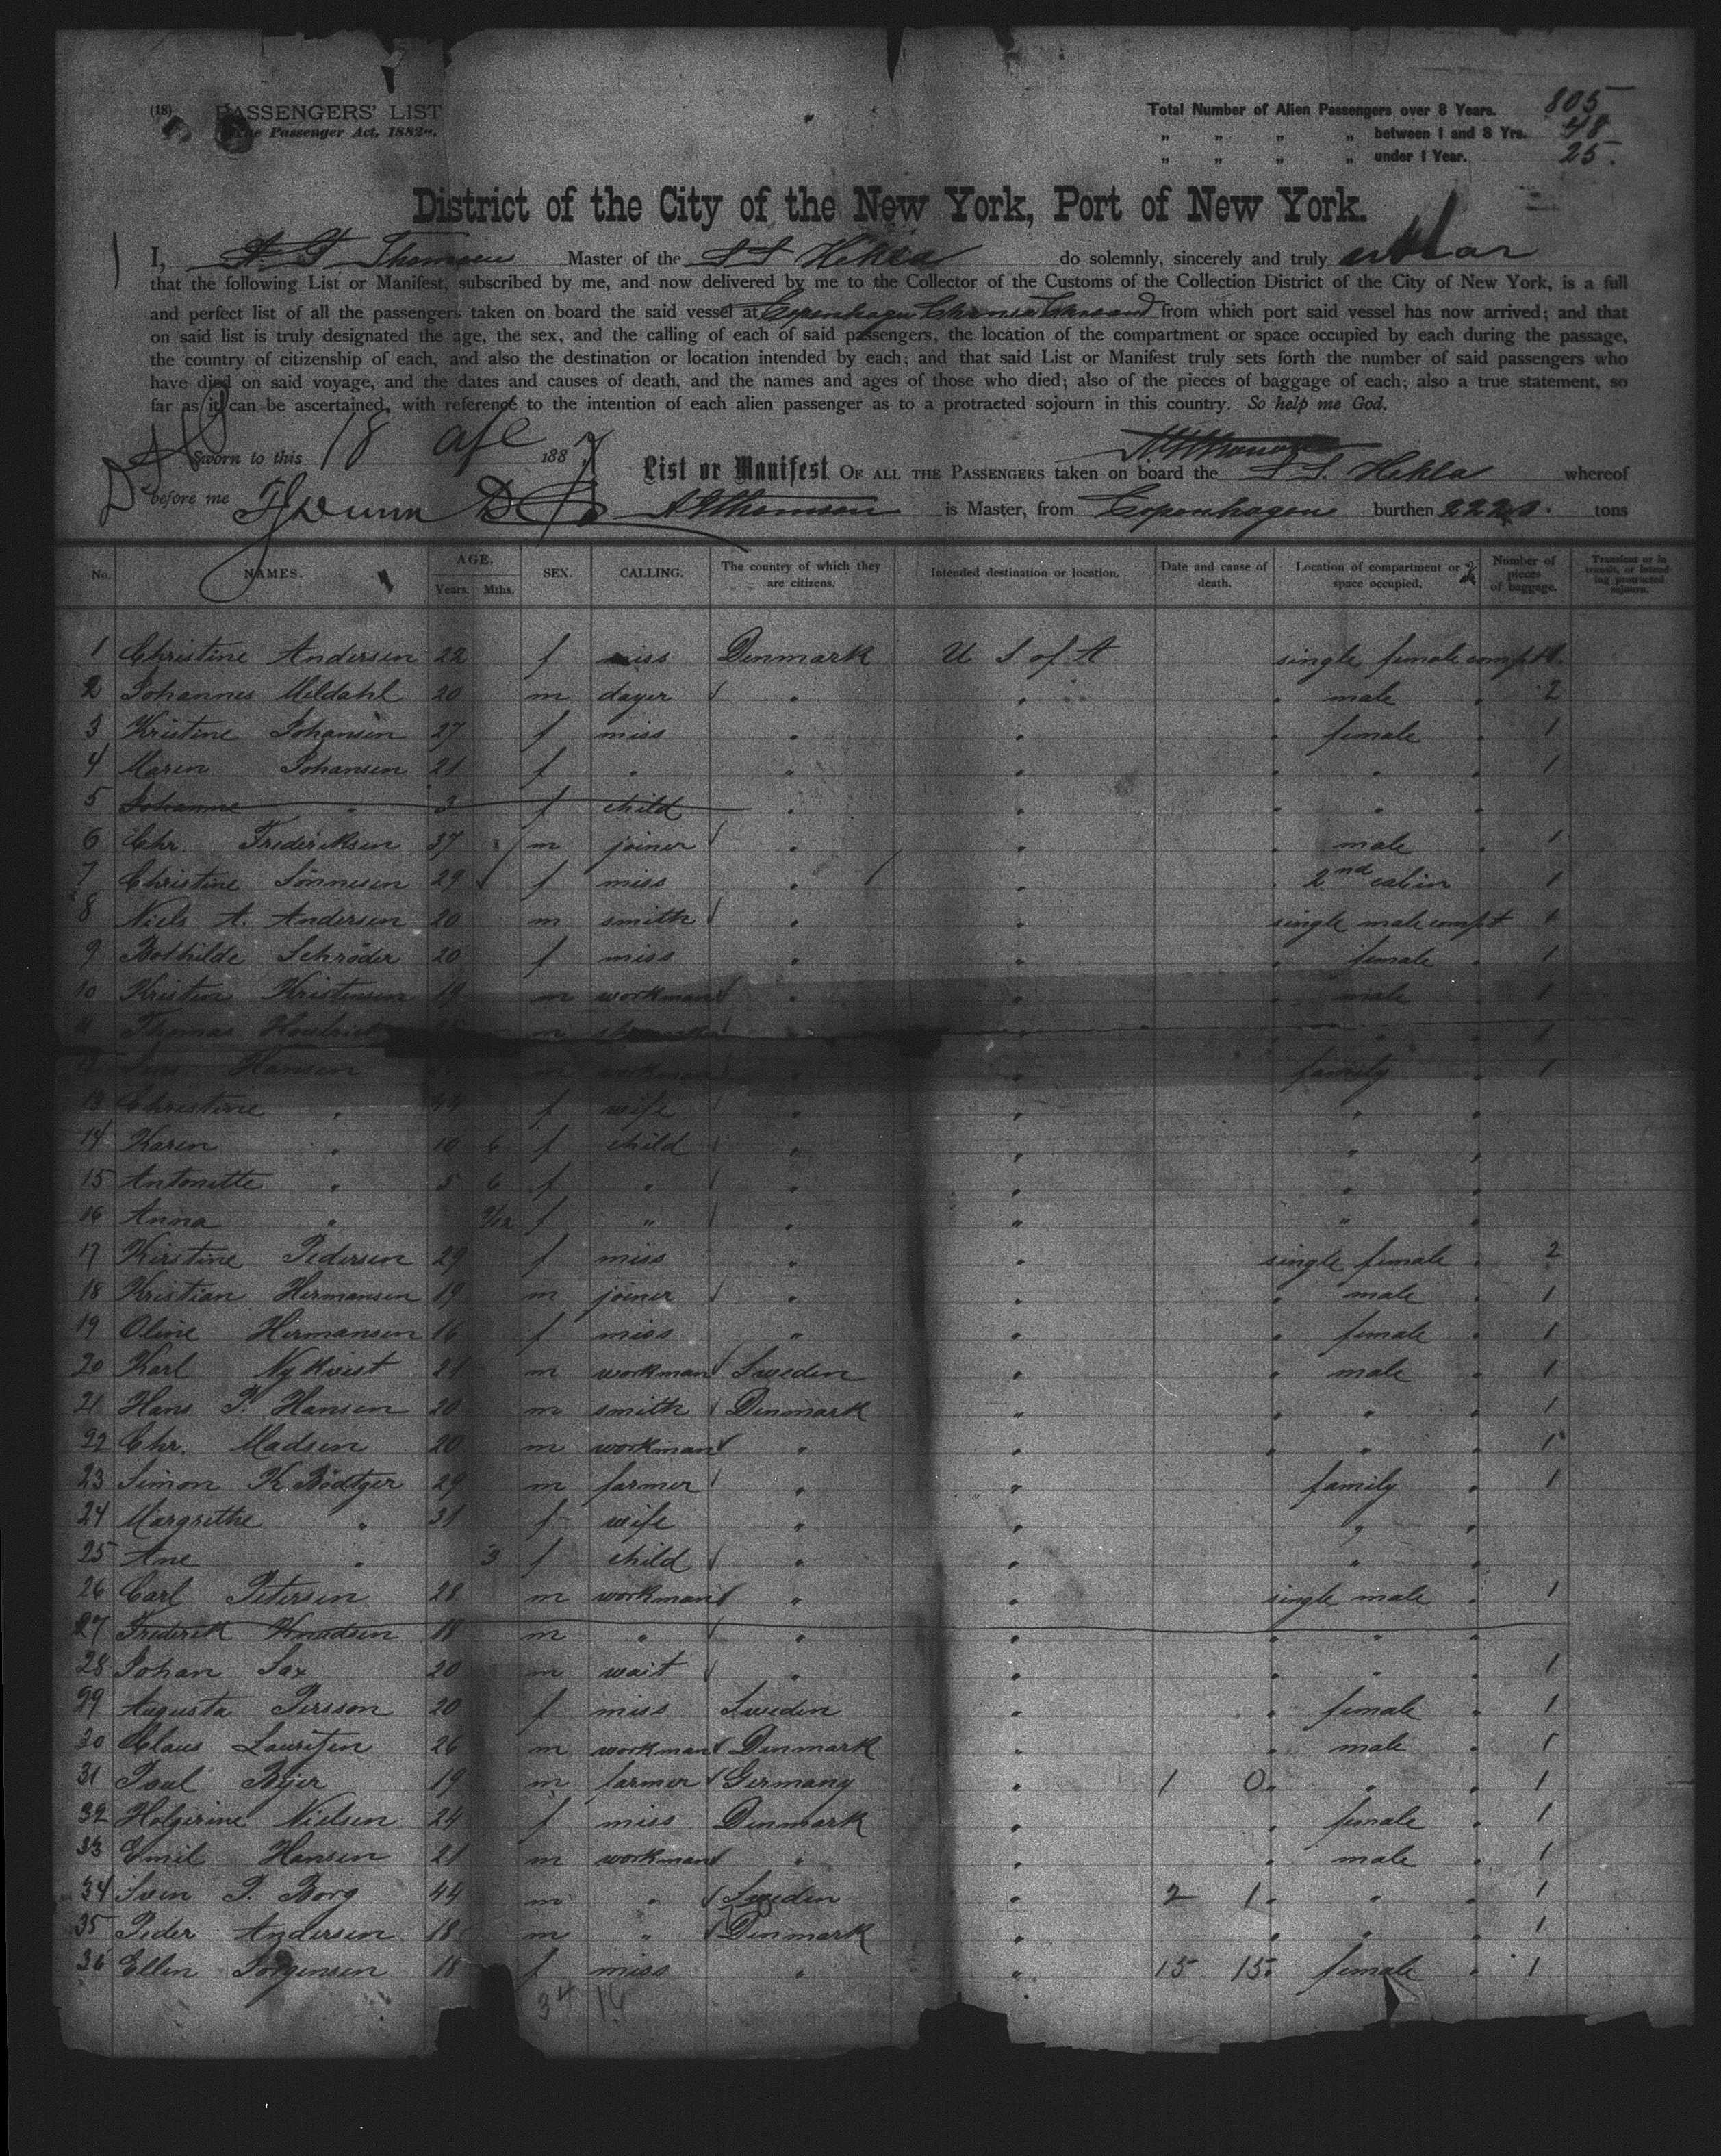 (18) PASSENGERS' LIST
The Passenger Act, 1882.
Total Number of Alien Passengers over 8 Years. 805
" " " " between 1 and 8 Yrs. 48
" " " " under 1 Year. 25.
District of the City of the New York, Port of New York.
I, Thomsen Master of the SS Hekla do solemnly, sincerely and truly swear
that the following List or Manifest, subscribed by me, and now delivered by me to the Collector of the Customs of the Collection District of the City of New York, is a full
and perfect list of all the passengers taken on board the said vessel at Copenhagen from which port said vessel has now arrived; and that
on said list is truly designated the age, the sex, and the calling of each of said passengers, the location of the compartment or space occupied by each during the passage,
the country of citizenship of each, and also the destination or location intended by each; and that said List or Manifest truly sets forth the number of said passengers who
have died on said voyage, and the dates and causes of death, and the names and ages of those who died; also of the pieces of baggage of each; also a true statement, so
far as it can be ascertained, with reference to the intention of each alien passenger as to a protracted sojourn in this country. So help me God.
Sworn to this 18 1887
List or Manifest OF ALL THE PASSENGERS taken on board the S S. Hekla whereof
before me Thomsen is Master, from Copenhagen burthen tons
No. NAMES. AGE. Years. Mths. SEX. CALLING. The country of which they are citizens. Intended destination or location. Date and cause of death. Location of compartment or space occupied. Number of pieces of baggage. Transient or in transit, or intending protracted sojourn.
1 Christine Andersen 22 f miss Denmark U S of A single female compt 1.
2 Johannes Meldahl 20 m dayer " " " male " 2
3 Kristine Johansen 27 f miss " " " female " 1
4 Maren Johansen 21 f " " " " " " 1
5 Johanne " 3 f child " " " " "
6 Chr. Frederiksen 37 m joiner " " " male " 1
7 Christine Sönnesen 29 f miss " " 2nd cabin 1
8 Niels A. Andersen 20 m smith " " single male compt 1
9 Bothilde Schröder 20 f miss " " " female " 1
10 Kristen Kristensen 19 m workman " " " male " 1
11 Thomas m " " " " " 1
Hansen m workman " " family " 1
13 Christine " 44 f wife " " " "
14 Karen " 10 6 f child " " " "
15 Antonette " 5 6 f " " " " "
16 Anna " 9/12 f " " " " "
17 Kirstine Pedersen 29 f miss " " single female " 2
18 Kristian Hermansen 19 m joiner " " " male " 1
19 Oline Hermansen 16 f miss " " " female " 1
20 Karl Nykvist 21 m workman Sweden " " male " 1
21 Hans P. Hansen 20 m smith Denmark " " " " 1
22 Chr. Madsen 20 m workman " " " " " 1
23 Simon K Bödtger 29 m farmer " " family " 1
24 Margrethe " 31 f wife " " " "
25 Ane " 3 f child " " "
26 Carl Petersen 28 m workman " " single male " 1
27 Frederik Knudsen 18 m " " " " " "
28 Johan Sax 20 m wait " " " " 1
29 Augusta Persson 20 f miss Sweden " " female " 1
30 Claus Lauritzen 26 m workman Denmark " " male " 1
31 Poul 19 m farmer Germany " 1 0 " " " 1
32 Holgerine Nielsen 24 f miss Denmark " " female " 1
33 Emil Hansen 21 m workman " " " male " 1
34 Sven P. Borg 44 m " Sweden " 2 1 " " " 1
35 Peder Andersen 18 m " Denmark " " " " 1
36 Ellen Jorgensen 18 f miss " " 15 15 " female " 1
34 16